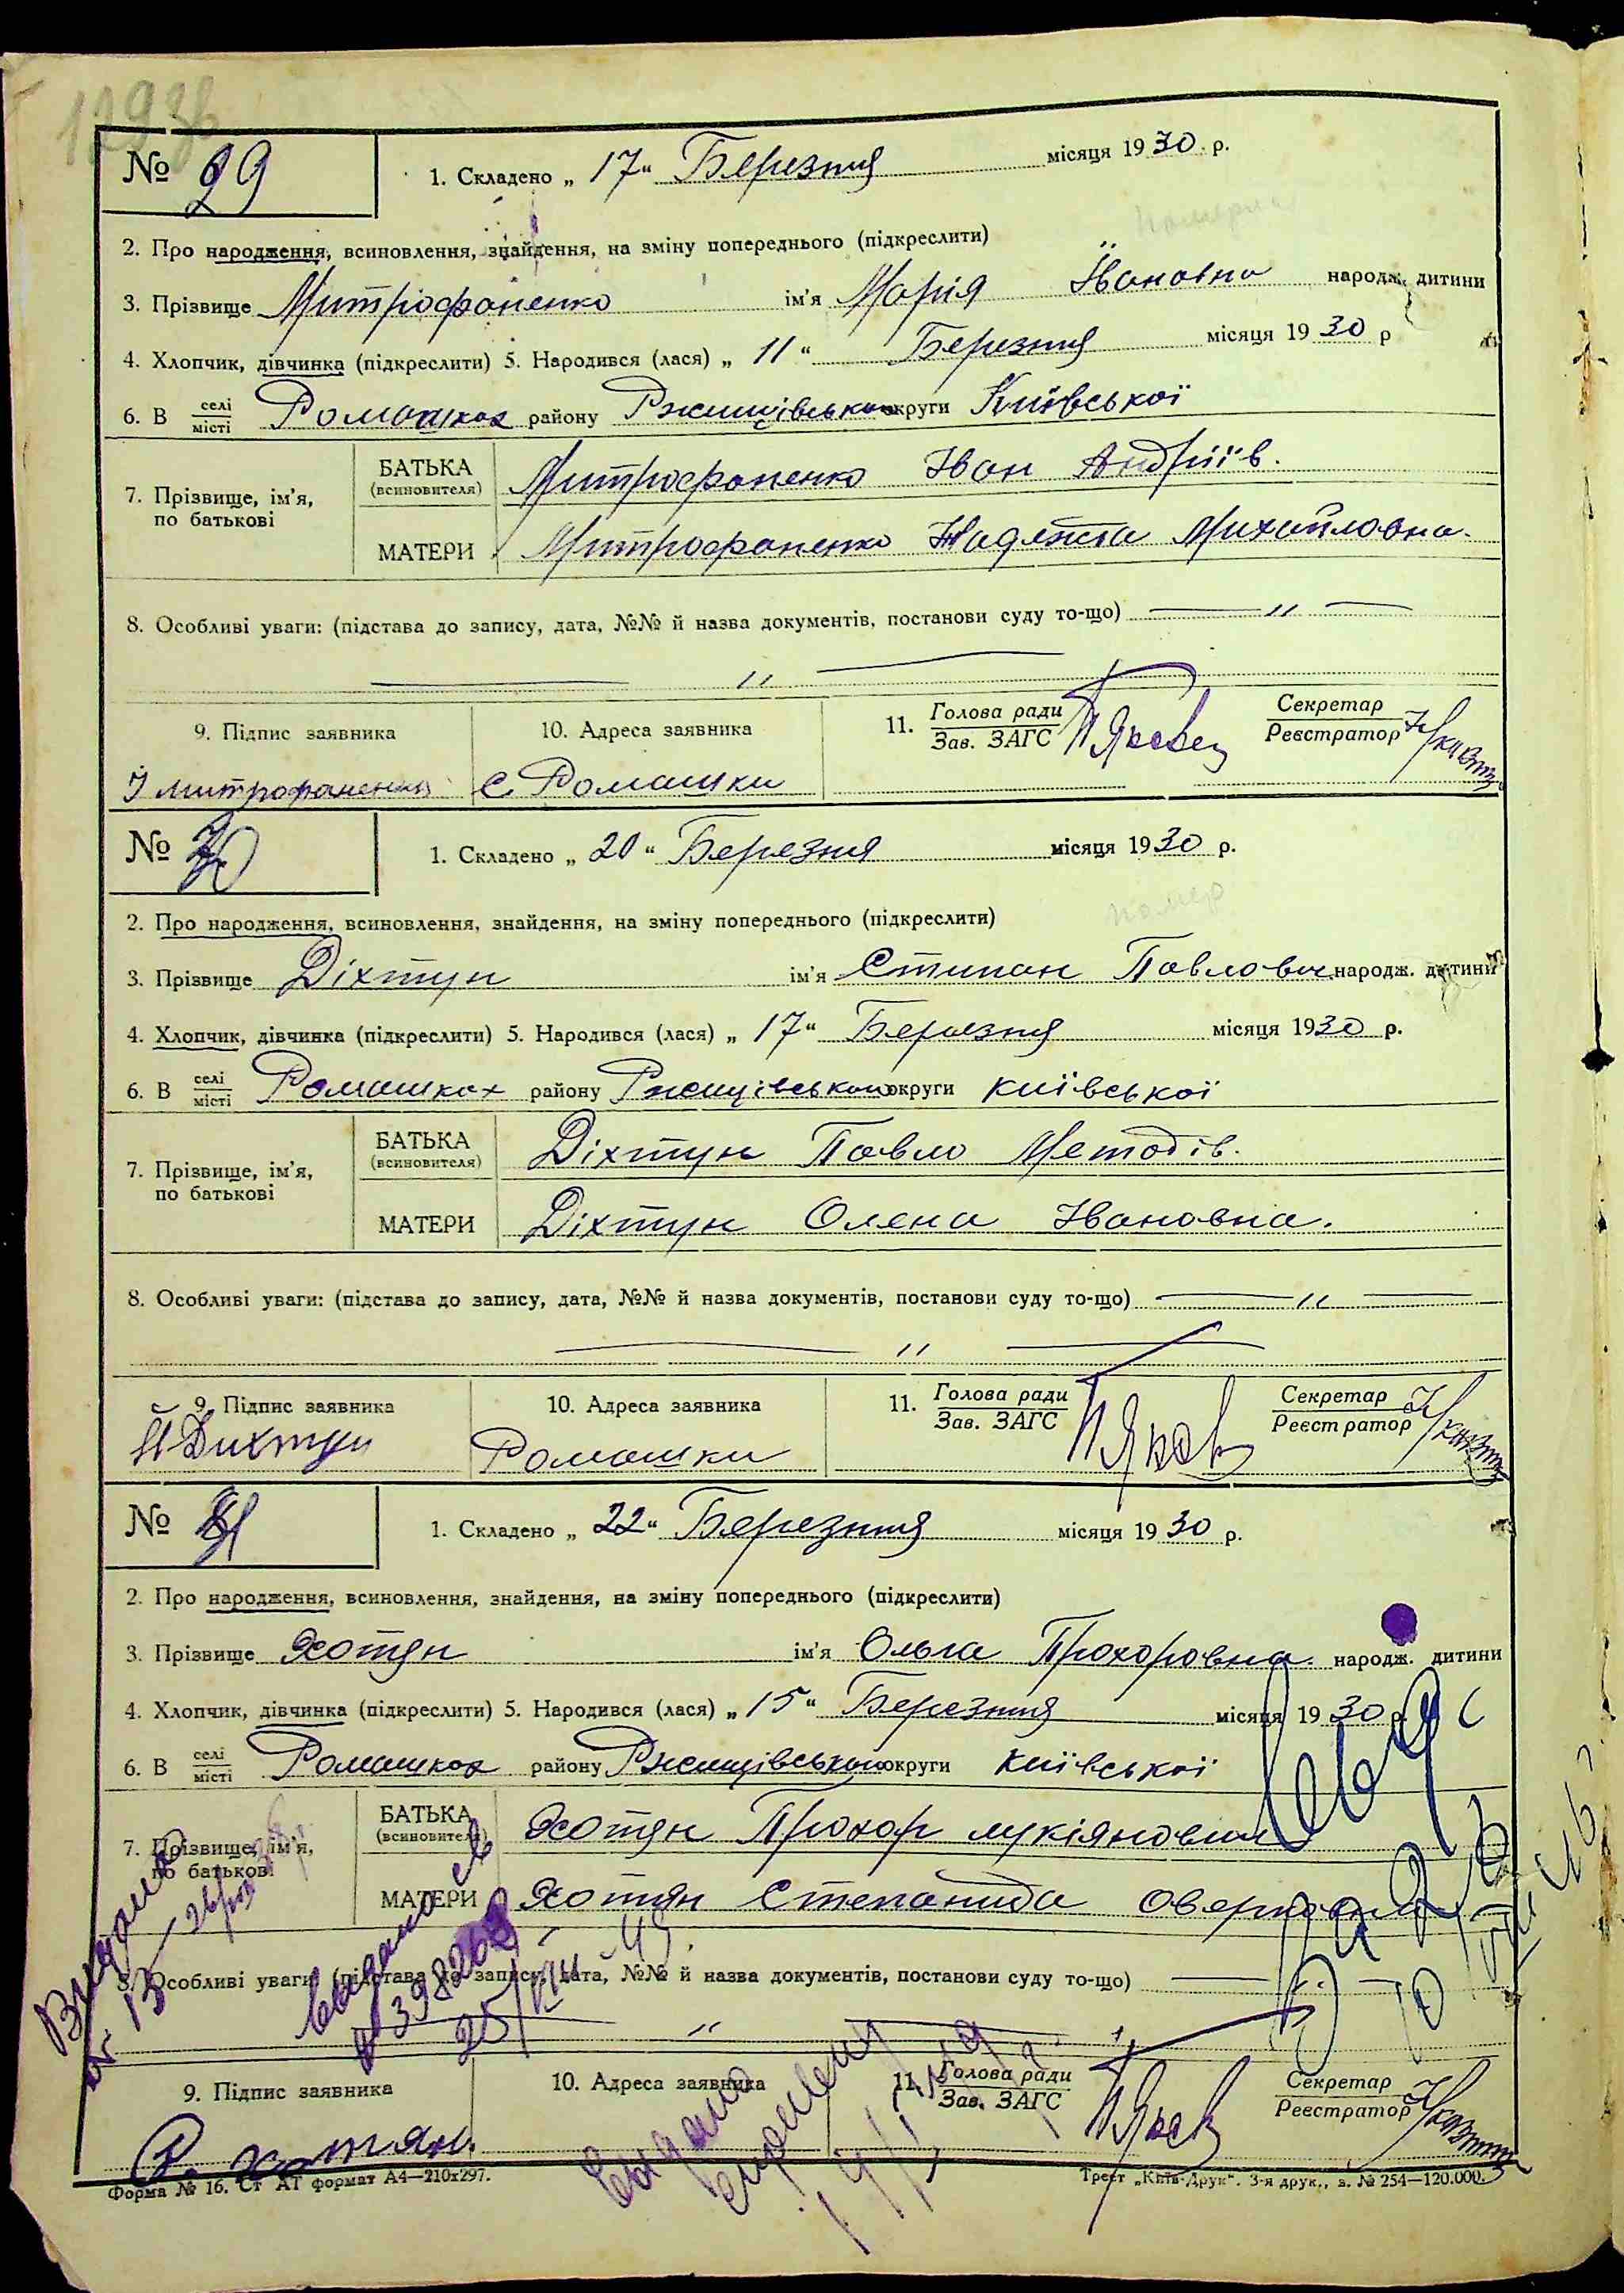 № 29 1. Складено „ 17 “ Березня місяця 1930 р.
2. Про народження, всиновлення, знайдення, на зміну попереднього (підкреслити)
3. Прізвище Митрофаненко ім'я Марія Івановна народж. дитини
4. Хлопчик, дівчинка (підкреслити) 5. Народився (лася) „ 11 “ Березня місяця 1930 р
6. В селі/місті Ромашках району Ржищівської округи Київської
7. Прізвище, ім'я, по батькові
БАТЬКА (всиновителя) Митрофаненко Іван Андріїв.
МАТЕРИ Митрофаненко Надежта Михайловна.
8. Особливі уваги: (підстава до запису, дата, №№ й назва документів, постанови суду то-що) — „ —
— „ —
9. Підпис заявника 10. Адреса заявника 11. Голова ради Зав. ЗАГС Секретар Реєстратор
І Митрофаненко с. Ромашки
№ 30 1. Складено „ 20 “ Березня місяця 1930 р.
помер
2. Про народження, всиновлення, знайдення, на зміну попереднього (підкреслити)
3. Прізвище Діхтун ім'я Стипан Павлович народж. дитини
4. Хлопчик, дівчинка (підкреслити) 5. Народився (лася) „ 17 “ Березня місяця 1930 р.
6. В селі/місті Ромашках району Ржищівської округи Київської
7. Прізвище, ім'я, по батькові
БАТЬКА (всиновителя) Діхтун Павло Методів.
МАТЕРИ Діхтун Олена Івановна.
8. Особливі уваги: (підстава до запису, дата, №№ й назва документів, постанови суду то-що) — „ —
— „ —
9. Підпис заявника 10. Адреса заявника 11. Голова ради Зав. ЗАГС Секретар Реєстратор
Дихтун Ромашки
№ 31 1. Складено „ 22 “ Березня місяця 1930 р.
2. Про народження, всиновлення, знайдення, на зміну попереднього (підкреслити)
3. Прізвище Хотян ім'я Ольга Прохоровна народж. дитини
4. Хлопчик, дівчинка (підкреслити) 5. Народився (лася) „ 15 “ Березня місяця 1930 р.
6. В селі/місті Ромашках району Ржищівської округи Київської
7. Прізвище, ім'я, по батькові
БАТЬКА (всиновителя) Хотян Прохор Лукіянович
МАТЕРИ Хотян Степанида
8. Особливі уваги: (підстава до запису, дата, №№ й назва документів, постанови суду то-що) —
„
9. Підпис заявника 10. Адреса заявника 11. Голова ради Зав. ЗАГС Секретар Реєстратор
П. Хотян
Форма № 16. Ст АТ формат А4—210х297. Трест „Київ-Друк“. 3-я друк., з. № 254—120.000.